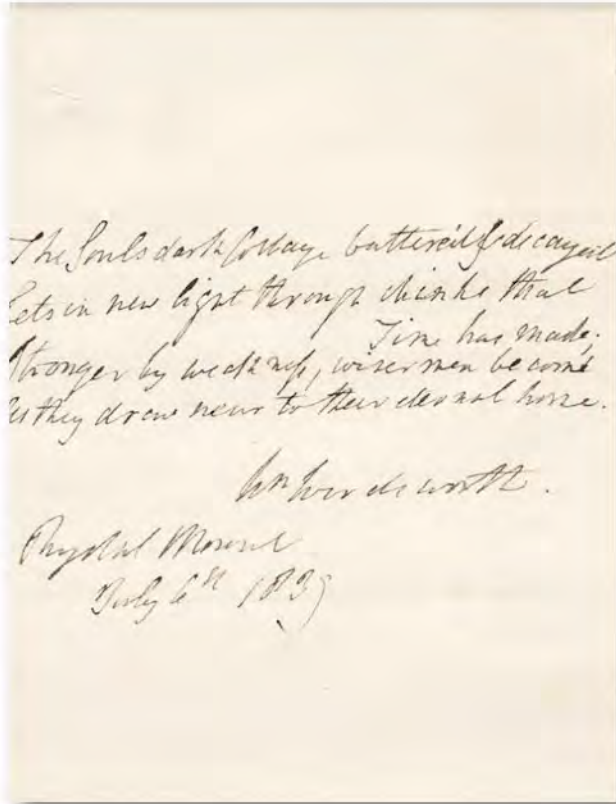 The Souls dark Cottage batter'd & decay'd
Lets in new light through chinks that
Time has made;
Stronger by weakness, wiser men become
As they draw near to their eternal home.
Wm Wordsworth.
Rydal Mount
July 6th 1839